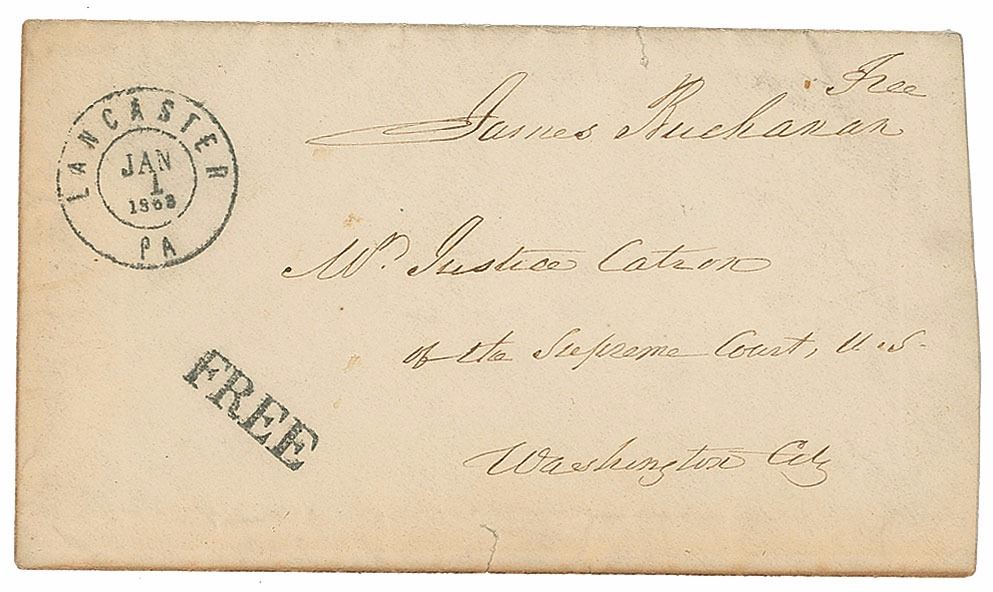 Free
James Buchanan
LANCASTER
JAN
1
1863
PA
Mr. Justice Catron
of the Supreme Court, U.S.
FREE
Washington City